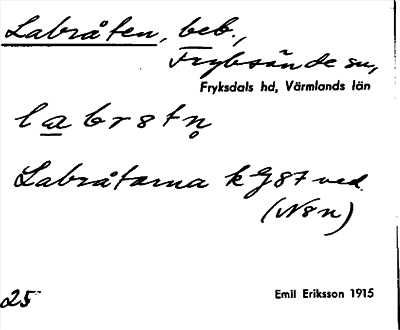 Labråten, beb.,
Fryksände sn,
Fryksdals hd, Värmlands län
labr8tn̥
Labråtarna k G87 ved.
(N8n)
25
Emil Eriksson 1915